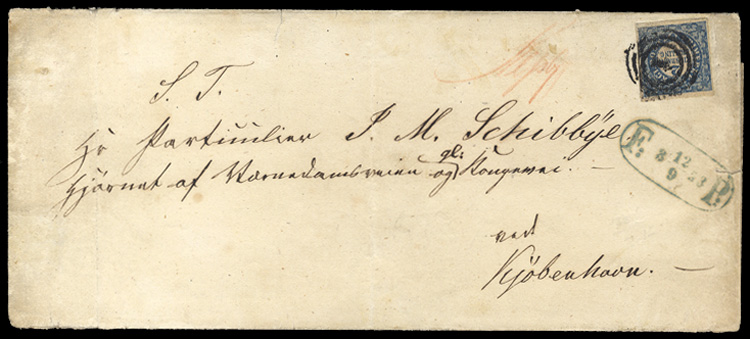 S. T.
Hr Particulier P. M. Schibbÿe
Hjørnet af Værnedamsveien og gl: Kongevei. —
ved
Kjøbenhavn. —
F: P:
12
8 53
9